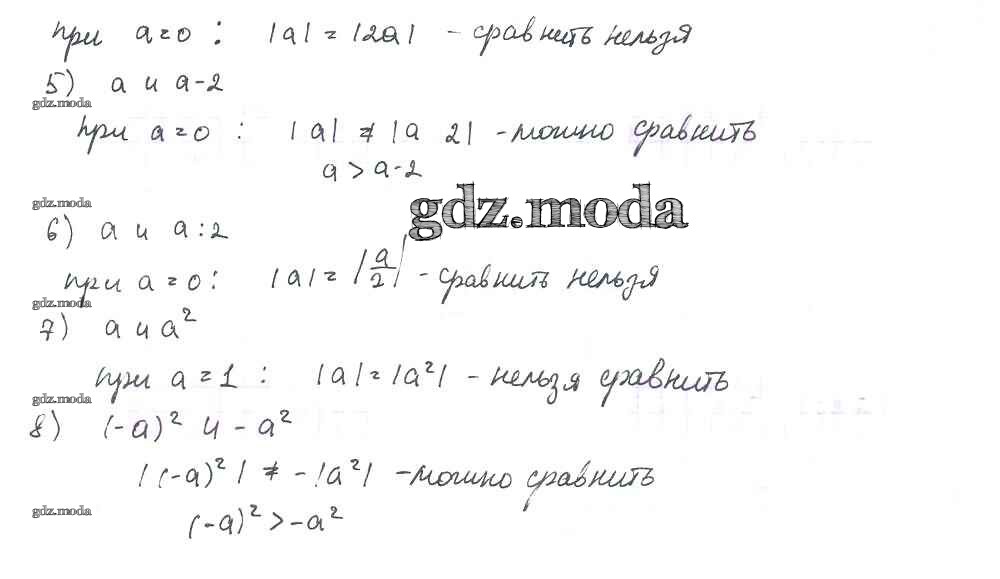 при a=0 : |a| = |2a| - сравнить нельзя
5) a и a-2
gdz.moda
при a=0 : |a| ≠ |a 2| - можно сравнить
a > a-2
gdz.moda
gdz.moda
6) a и a:2
при a=0: |a| = |a/2| - сравнить нельзя
gdz.moda
7) a и a²
при a=1 : |a|=|a²| - нельзя сравнить
gdz.moda
8) (-a)² и -a²
|(-a)²| ≠ -|a²| - можно сравнить
gdz.moda
(-a)² > -a²